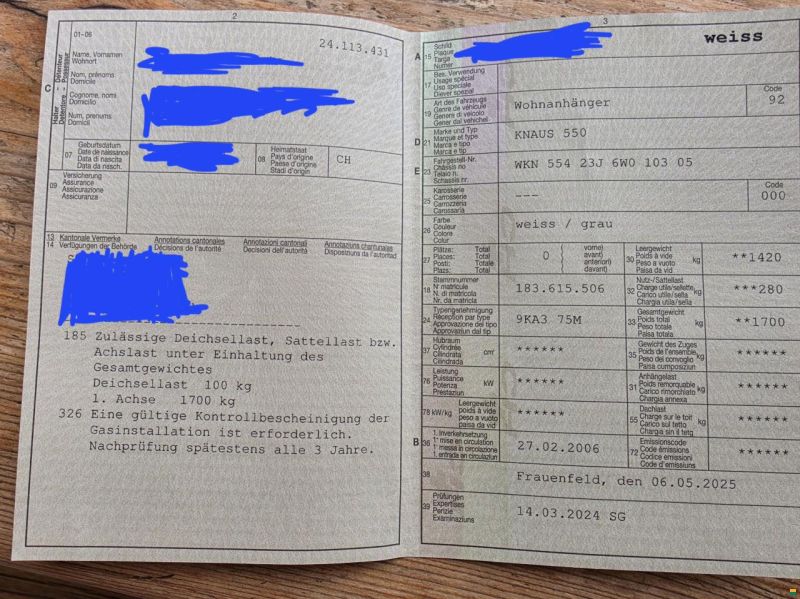 2
01-06
24.113.431
C
Halter Détenteur
Detentore Possessur
Name, Vornamen
Wohnort
Nom, prénoms
Domicile
Cognome, nomi
Domicilio
Num, prenums
Domicil
07
Geburtsdatum
Date de naissance
Data di nascita
Data da nasch.
08
Heimatstaat
Pays d'origine
Paese d'origine
Stadi d'origin
CH
09
Versicherung
Assurance
Assicurazione
Assicuranza
13 Kantonale Vermerke Annotations cantonales Annotazioni cantonali Annotaziuns chantunalas
14 Verfügungen der Behörde Décisions de l'autorité Decisioni dell'autorità Disposiziuns da l'autoritad
185 Zulässige Deichsellast, Sattellast bzw.
Achslast unter Einhaltung des
Gesamtgewichtes
Deichsellast 100 kg
1. Achse 1700 kg
326 Eine gültige Kontrollbescheinigung der
Gasinstallation ist erforderlich.
Nachprüfung spätestens alle 3 Jahre.
3
A
15
Schild
Plaque
Targa
Numer
weiss
17
Bes. Verwendung
Usage spécial
Uso speciale
Diever spezial
19
Art des Fahrzeugs
Genre de véhicule
Genere di veicolo
Gener dal vehichel
Wohnanhänger
Code
92
D
21
Marke und Typ
Marque et type
Marca e tipo
Marca e tip
KNAUS 550
E
23
Fahrgestell-Nr.
Châssis no
Telaio n.
Schassis nr.
WKN 554 23J 6W0 103 05
25
Karosserie
Carrosserie
Carrozzeria
Carossaria
---
Code
000
26
Farbe
Couleur
Colore
Colur
weiss / grau
27
Plätze: Total
Places: Total
Posti: Totale
Plazs: Total
0
vorne)
avant)
anteriori)
davant)
30
Leergewicht
Poids à vide
Peso a vuoto
Paisa da vid
kg
**1420
18
Stammnummer
N° matricule
N. di matricola
Nr. da matricla
183.615.506
32
Nutz-/Sattellast
Charge utile/sellette
Carico utile/sella
Chargia utila/sella
kg
***280
24
Typengenehmigung
Réception par type
Approvazione del tipo
Approvaziun dal tip
9KA3 75M
33
Gesamtgewicht
Poids total
Peso totale
Paisa totala
kg
**1700
37
Hubraum
Cylindrée
Cilindrata
Cilindrada
cm³
******
35
Gewicht des Zuges
Poids de l'ensemble
Peso del convoglio
Paisa composiziun
kg
******
76
Leistung
Puissance
Potenza
Prestaziun
kW
******
31
Anhängelast
Poids remorquable
Carico rimorchiato
Chargia annexa
kg
******
78 kW/kg
Leergewicht
poids à vide
peso a vuoto
paisa da vid
******
55
Dachlast
Charge sur le toit
Carico sul tetto
Chargia sin il tetg
kg
******
B
36
1. Inverkehrsetzung
1re mise en circulation
1. messa in circolazione
1. entrada en circulaziun
27.02.2006
72
Emissionscode
Code émissions
Codice emissioni
Code d'emissiuns
******
38
Frauenfeld, den 06.05.2025
39
Prüfungen
Expertises
Perizie
Examinaziuns
14.03.2024 SG